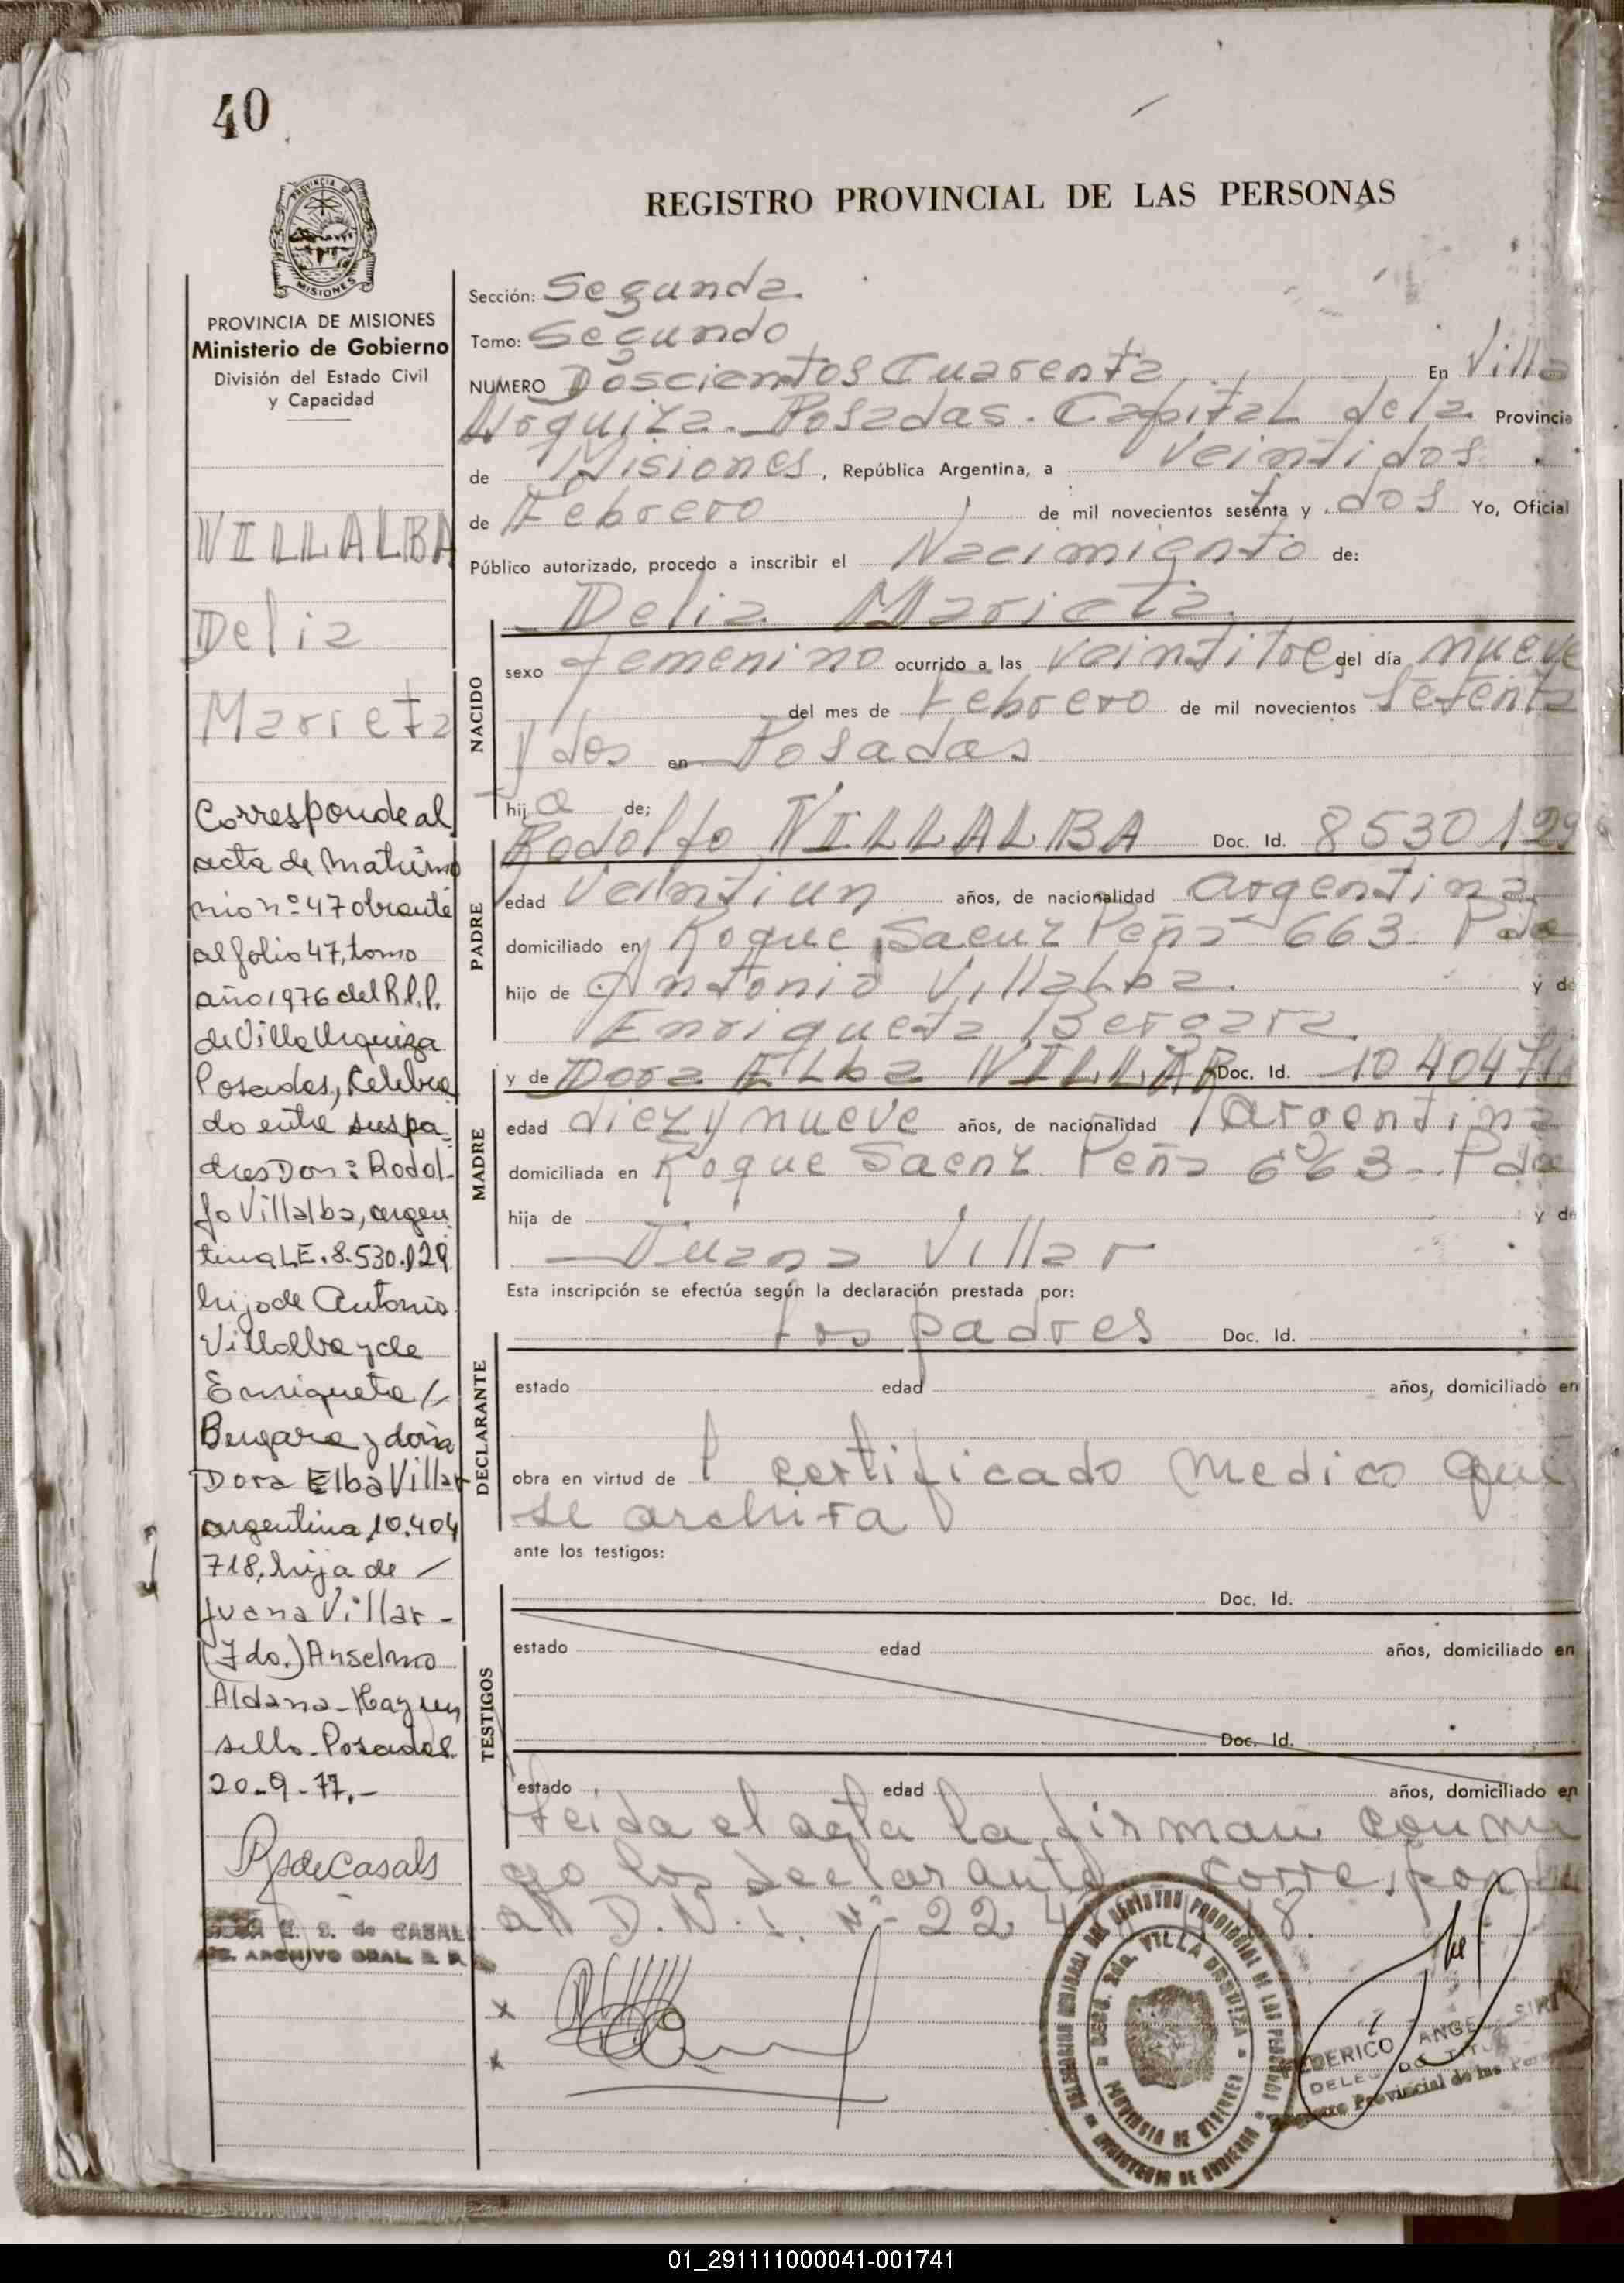 40
PROVINCIA DE MISIONES
MISIONES
PROVINCIA DE MISIONES
Ministerio de Gobierno
División del Estado Civil
y Capacidad
VILLALBA
Delia
Marieta
Corresponde al
acta de matrimo
nio nº 47 obrante
al folio 47, tomo
año 1976 del R.P.P.
de Villa Urquiza
Posadas, Celebra
do entre sus pa
dres Don: Rodol-
fo Villalba, argen
tina L.E. 8.530.129
hijo de Antonio
Villalba y de
Enriqueta
Bergara y doña
Dora Elba Villar
argentina 10.404
718, hija de
Juana Villar -
(Fdo.) Anselmo
Aldana - Hay un
sello - Posadas
20-9-77.-
de Casals
de CASALS
ARCHIVO GRAL R. P.
REGISTRO PROVINCIAL DE LAS PERSONAS
Sección: Segunda
Tomo: Segundo
NUMERO Doscientos Cuarenta En Villa
Urquiza - Posadas - Capital de la Provincia
de Misiones, República Argentina, a Veintidos
de Febrero de mil novecientos sesenta y dos Yo, Oficial
Público autorizado, procedo a inscribir el Nacimiento de:
Delia Marieta
NACIDO
sexo femenino ocurrido a las veintitres del día nueve
del mes de Febrero de mil novecientos setenta
y dos en Posadas
hija de;
PADRE
Rodolfo VILLALBA Doc. Id. 8530129
edad Veintiun años, de nacionalidad argentina
domiciliado en Roque Saenz Peña 663 - Pdas
hijo de Antonio Villalba y de
Enriqueta Bergara
MADRE
y de Dora Elba VILLAR Doc. Id. 10404718
edad diez y nueve años, de nacionalidad Argentina
domiciliada en Roque Saenz Peña 663 - Pdas
hija de y de
Juana Villar
Esta inscripción se efectúa según la declaración prestada por:
DECLARANTE
los padres Doc. Id.
estado edad años, domiciliado en
obra en virtud de l certificado medico que
se archiva
ante los testigos:
TESTIGOS
Doc. Id.
estado edad años, domiciliado en
Doc. Id.
estado edad años, domiciliado en
Leida el acta la firman conmi
go los declarantes corresponde
al D.N.I. Nº 22.4
x
x
DELEGACION REGISTRO PROVINCIAL DE LAS PERSONAS
MINISTERIO DE GOBIERNO
SECC. 2da. VILLA URQUIZA
PROVINCIA DE MISIONES
FEDERICO ANGEL
DELEGADO TITULAR
Registro Provincial de las Personas
01_291111000041-001741